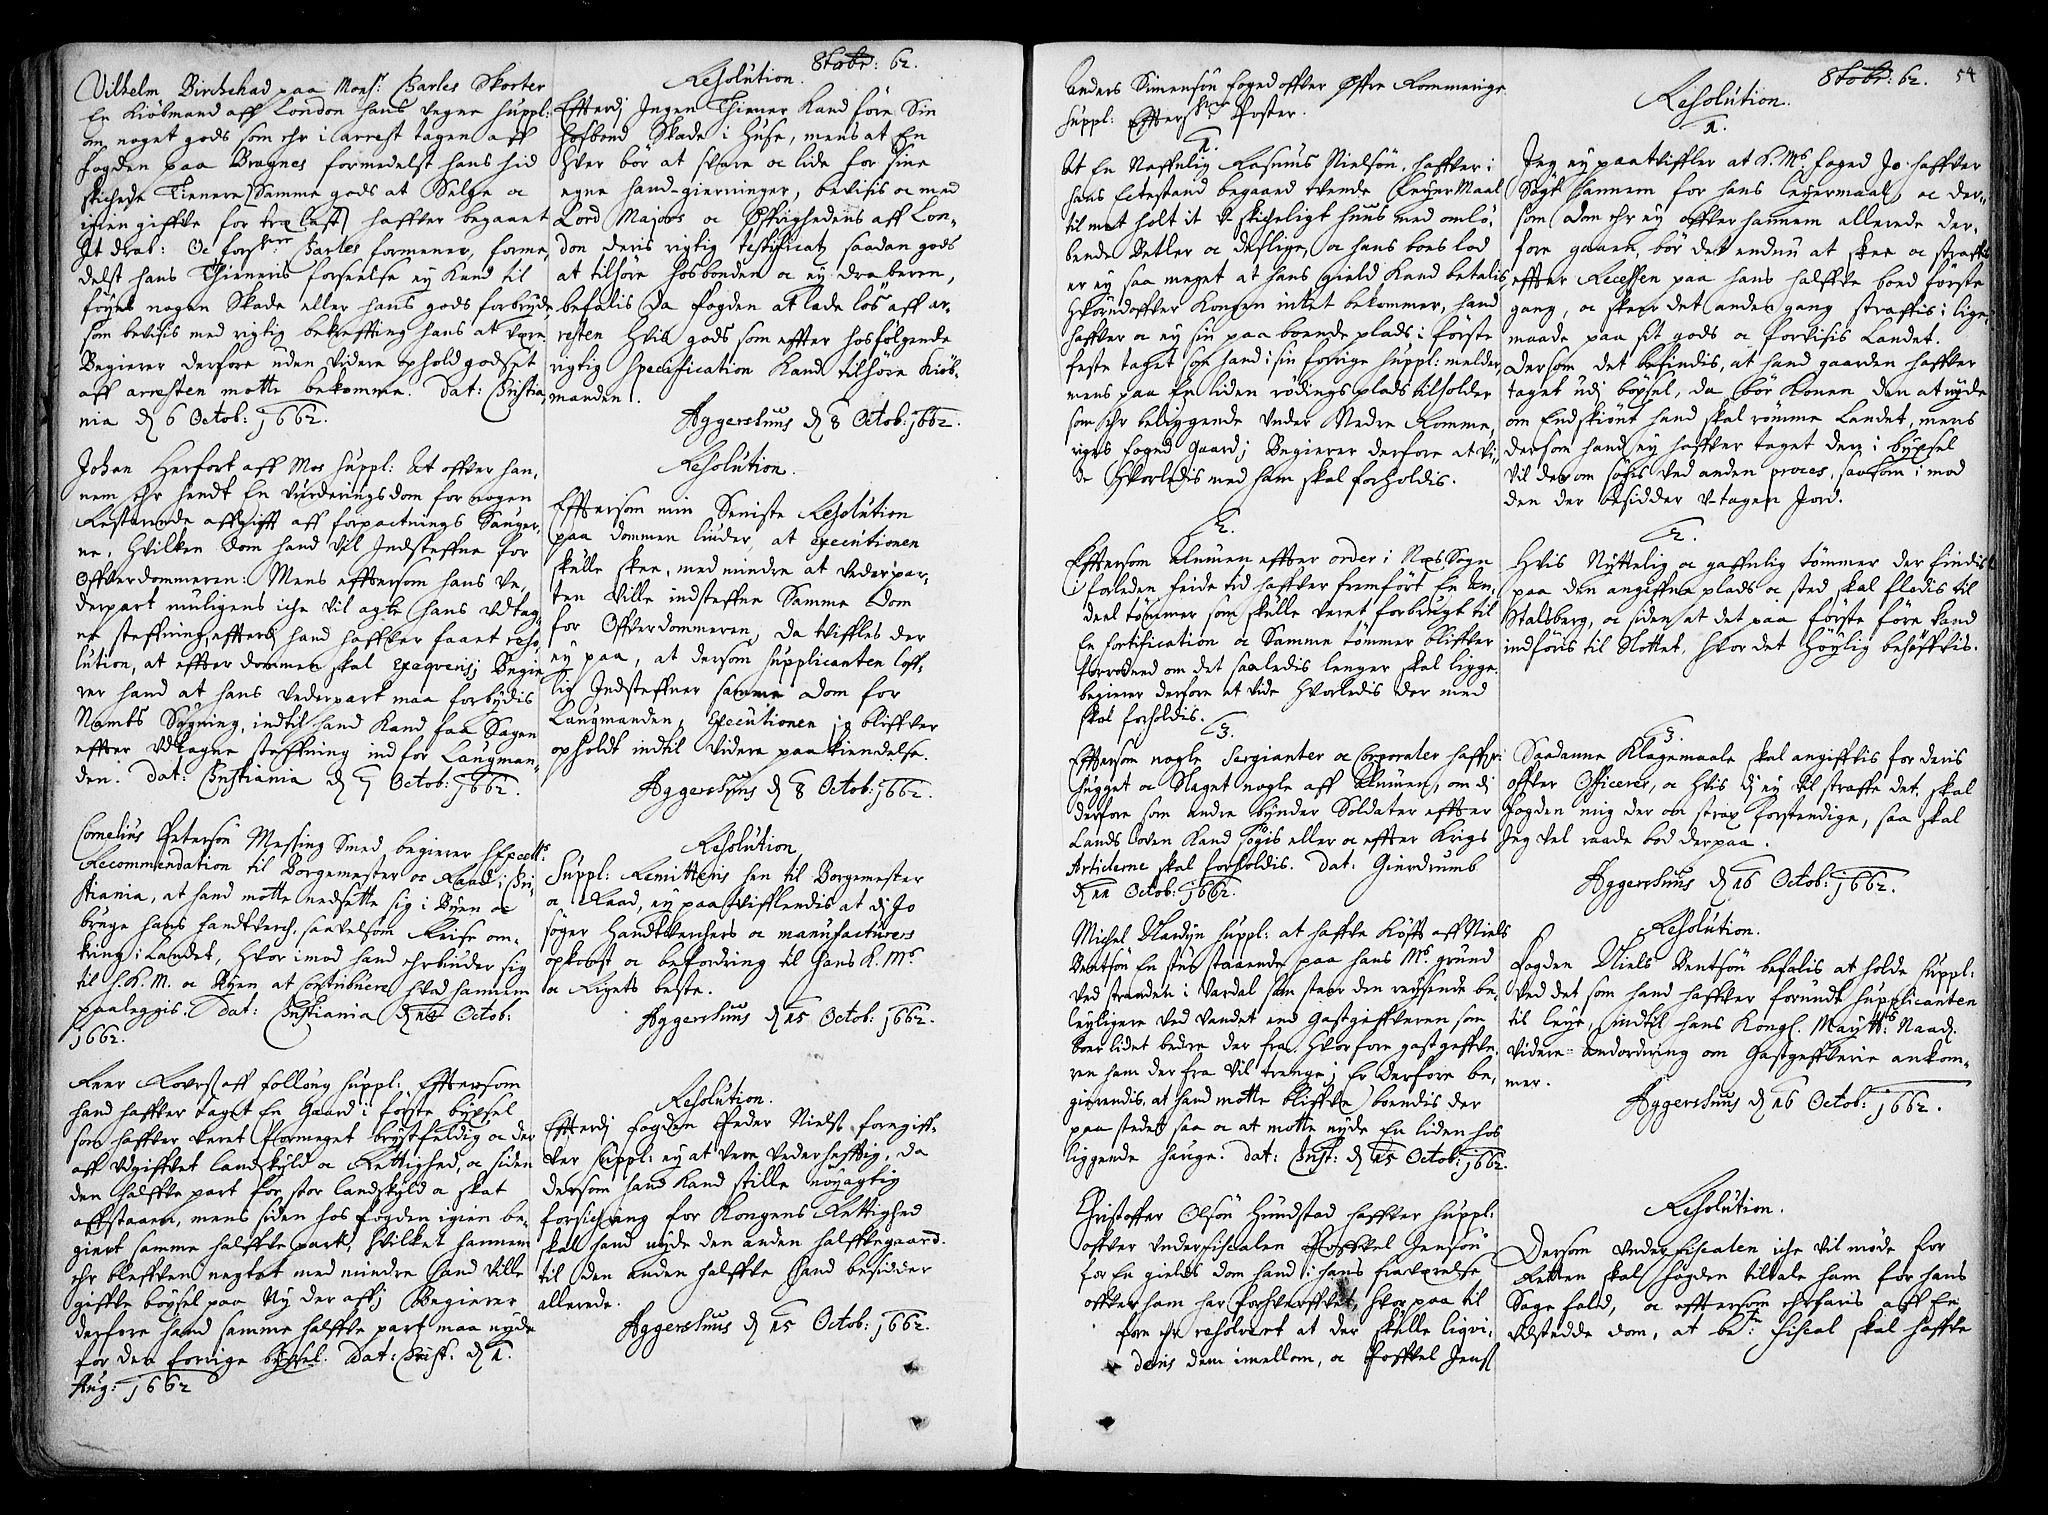 8tobr: 62.
Vilhelm Birchehad paa Mons: Carles Skorter
En Kiöbmand aff London hans vegne suppl:
om noget gods som ehr i arrest tagen aff
fogden paa Bragnes formedelst hans hid
skichede Tienere Samme gods at Selge oc
igien giffve for træ last haffver begaaet
Et drab: Oc forschrne Carles formener, forme,
delst hans Thieneris forseelse ey kand til
föyes nogen Skade eller hans gods forbryde
som bevisis med rigtig bekrefting hans at vere
Begierer derfore uden videre ophold godset
aff arresten motte bekomme. Dat: Christia,
nia d 6 Octob: 1662.
Resolution.
Efterdj Ingen Thiener Kand före Sin
hosbond Skade i Huse, mens at En
Hver bör at svare oc lide for sine
egne hand-gierninger, bevisis oc med
Lord Majors oc Öffrighedens aff Lon,
don deris rigtig testificatz saadan gods
at tilhöre hosbonden oc ey draberen,
befalis da fogden at lade lös aff ar,
resten Hvis gods som effter hosfölgende
rigtig specification Kand tilhöre Kiöb,
manden.
Aggershuus d 8 Octob: 1662.
Johan Herfort aff Mos suppl: At offver han,
nem ehr hendt En vurderings dom for nogen
Resterende affgifft aff forpactnings Sauger,
ne, Hvilken dom hand vil Indsteffne for
Offverdommeren: Mens efftersom hans Ve,
derpart muligens iche vil agte hans udtag,
ne steffning, effterdj hand haffver faaet reso,
lution, at effter dommen skal exeqveris; Begie,
rer hand at hans vederpart maa forbydis
Nambs Sögning, indtil hand Kand faa Sagen
effter udtagne steffning ind for Laugman,
den. Dat: Christiania d 7 Octob: 1662.
Resolution.
Efftersom min Seniste Resolution
paa dommen liuder, at executionen
skulle skee, med mindre at vederpar,
ten ville indsteffne Samme dom
for Offverdommeren, Da tviffles der
ey paa, at dersom supplicanten loff,
lig Indsteffner samme dom for
Laugmanden, Executionen jo bliffver
opholdt indtil videre paakiendelse.
Aggershuus d 8 Octob: 1662.
Cornelius Peterson Messing Smed begierer H Excellts:
Recommendation til Borgemester oc Raad i Chri,
stiania, at hand motte nedsette sig i Byen oc
bruge hans handtverch, saavelsom Reise om,
kring i Landet, Hvor imod hand ehrbiuder sig
til H. K. M. oc Byen at contribuere hvad hannem
paaleggis. Dat: Christiania d 14 Octob:
1662.
Resolution
Suppl: Remitteris hen til Borgemester
oc Raad, ey paatvifflendis at dj Jo
söger Handtverchers oc manufacturers
opkomst oc befordring til Hans K. Ms.
oc Rigets beste.
Aggershuus d 15 Octob: 1662.
Peer Lovrs: aff Follong suppl: Efftersom
hand haffver taget En Gaard i förste böxsel
som haffver veret formeget bröstfeldig oc der
aff udgiffvet landskyld oc Rettighed, oc siden
den halffve part for stor landskyld oc skat
affstaaen, mens siden hos fogden igien be,
giert samme halffve part, Hvilket hannem
ehr bleffven negtet med mindre Hand ville
giffve böxsel paa Ny der aff; Begierer
derfore hand samme halffve part maa nyde
for den forrige böxsel. Dat: Christ: d 1.
Aug: 1662
Resolution.
Effterdj fogden Peder Nielss: foregiff,
ver suppl: ey at vere vederhefftig, da
dersom hand Kand stille nöyagtig
forsichring for Kongens Rettighed
skal hand nyde den anden halffvegaard.
til den anden halffve Hand besidder
allerede.
Aggershuus d 15 Octob: 1662.
8tobr: 62.
54
Anders Simensön foged offver Öffre Rommerige
suppl: Efftersch: Poster.
1.
At En Naffnlig Rasmus Nielsön, haffver i
hans Echtestand begaaed tvende Leyer Maal
til med holt it U-skicheligt huus med omlö,
bende Betler oc deslige, oc hans boes lod
er ey saa meget at hans gield kand betalis
Hvorudoffver Kongen intet bekommer, hand
haffver oc ey sin paa boende plads i förste
feste taget som hand i sin forrige suppl: melder
mens paa En liden rödings plads tilholder
som ehr beliggende under Nedre Romme,
riges foged Gaard; Begierer derfore at vi,
de Hvorledis med ham skal forholdis.
Resolution.
1.
Jeg ey paatviffler at K. Ms: foged Jo haffver
Sögt Hannem for hans leyermaal, oc der,,
som dom ehr ey offver hannem allerede der,
fore gaaet, bör det endnu at skee oc straffis
effter Recessen paa hans halffve boed förste
gang, oc skeer det anden gang straffis i lige,
maade paa sit gods oc forvisis Landet.
Dersom det befindis, at hand gaarden haffver
taget udj böysel, da bör Konen den at nyde
om Endskiönt hand skal römme Landet, mens
dersom hand ey haffver taget den i byxsel
vil der om söges ved anden proces, saasom i mod
den der besidder u-tagen Jord.
2.
Efftersom Almuen effter order i Næs Sogn
i forleden feide tid haffver fremfört En An,
deel tömmer som skulle veret forbrugt til
En fortification oc Samme tömmer bliffver
forrodned om det saaledis lenger skal ligge.
begierer derfore at vide Hvorledis der med
skal forholdis.
2.
Hvis Nyttelig oc gaffnlig tömmer der findis
paa den angiffne plads oc sted skal flödis til
Stalsberg, oc siden at det paa förste före kand
indföris til Slottet, hvor det höylig behöffvis.
3.
Efftersom nogle Sergianter oc Corporaler haffver
hugget oc Slaget nogle aff Almuen, om dj
derfore som andre bynder Soldater effter
Lands Loven Kand sögis eller oc effter Krigs
Articlerne skal forholdis. Dat: Gierdrumb
d 11 Octob: 1662.
3.
Saadanne Klagemaale skal angiffvis for deris
offver Officerer, oc hvis dj ey vil straffe det, skal
fogden mig der om strax forstendige, saa skal
Jeg vel raade bod derpaa.
Aggershuus d 16 Octob: 1662.
Michel Nardijn suppl: at haffve kiöfft aff Niels
Bentsön En stue staaende paa hans Ms. grund
ved stranden i Vardal som staar den reysende be,
leyligere ved vandet end Gastgiffveren som
boer lidet bedre der fra. Hvorfore gastgeffve,
ren ham der fra vil trenge; Er derfore be,
gierendis, at hand motte bliffve boendis der
paa stedet saa oc at motte nyde En liden hos
liggende hauge. Dat: Christ: d 15 Octob: 1662.
Resolution.
Fogden Niels Bentsön befalis at holde suppl:
ved det som hand haffver forundt supplicanten
til leye, indtil hans Kongl. Maytts. Naad:
videre andordning om Gastgeffverie ankom,
mer.
Aggershuus d 16 Octob: 1662.
Christoffer Olsön Hundstad haffver suppl:
offver underfiscalen Poffvel Jensön
for En gields dom hand i hans fraværelse
offver ham har forhverffvet, hvor paa til
forn er resolvert at der skulle liqvi,
deris dem imellom, oc Poffvel Jens:
Resolution.
Dersom underfiscalen iche vil möde for
Retten skal fogden tiltale ham for hans
Sags fald, oc efftersom ehrfaris aff En
udstedde dom, at bete: fiscal skal haffve